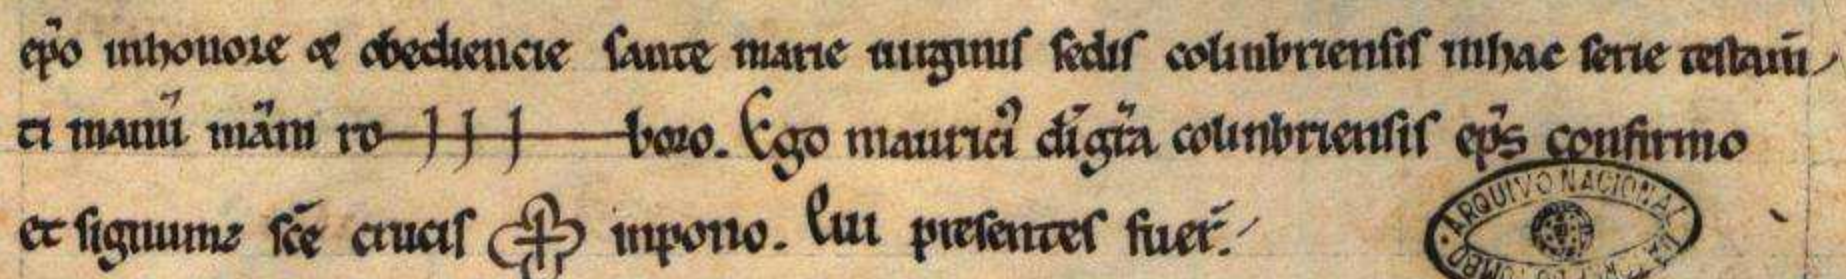 ep̃o inhonore et obediencie sancte marie uirginis sedis colinbriensis inhac serie testam̃
ti manũ mãm ro boro. Ego maurici⁹ dĩ gr̃a colinbriensis ep̃s confirmo
et signum sc̃e crucis inpono. Qui presentes fuer̃.
ARQUIVO NACIONAL